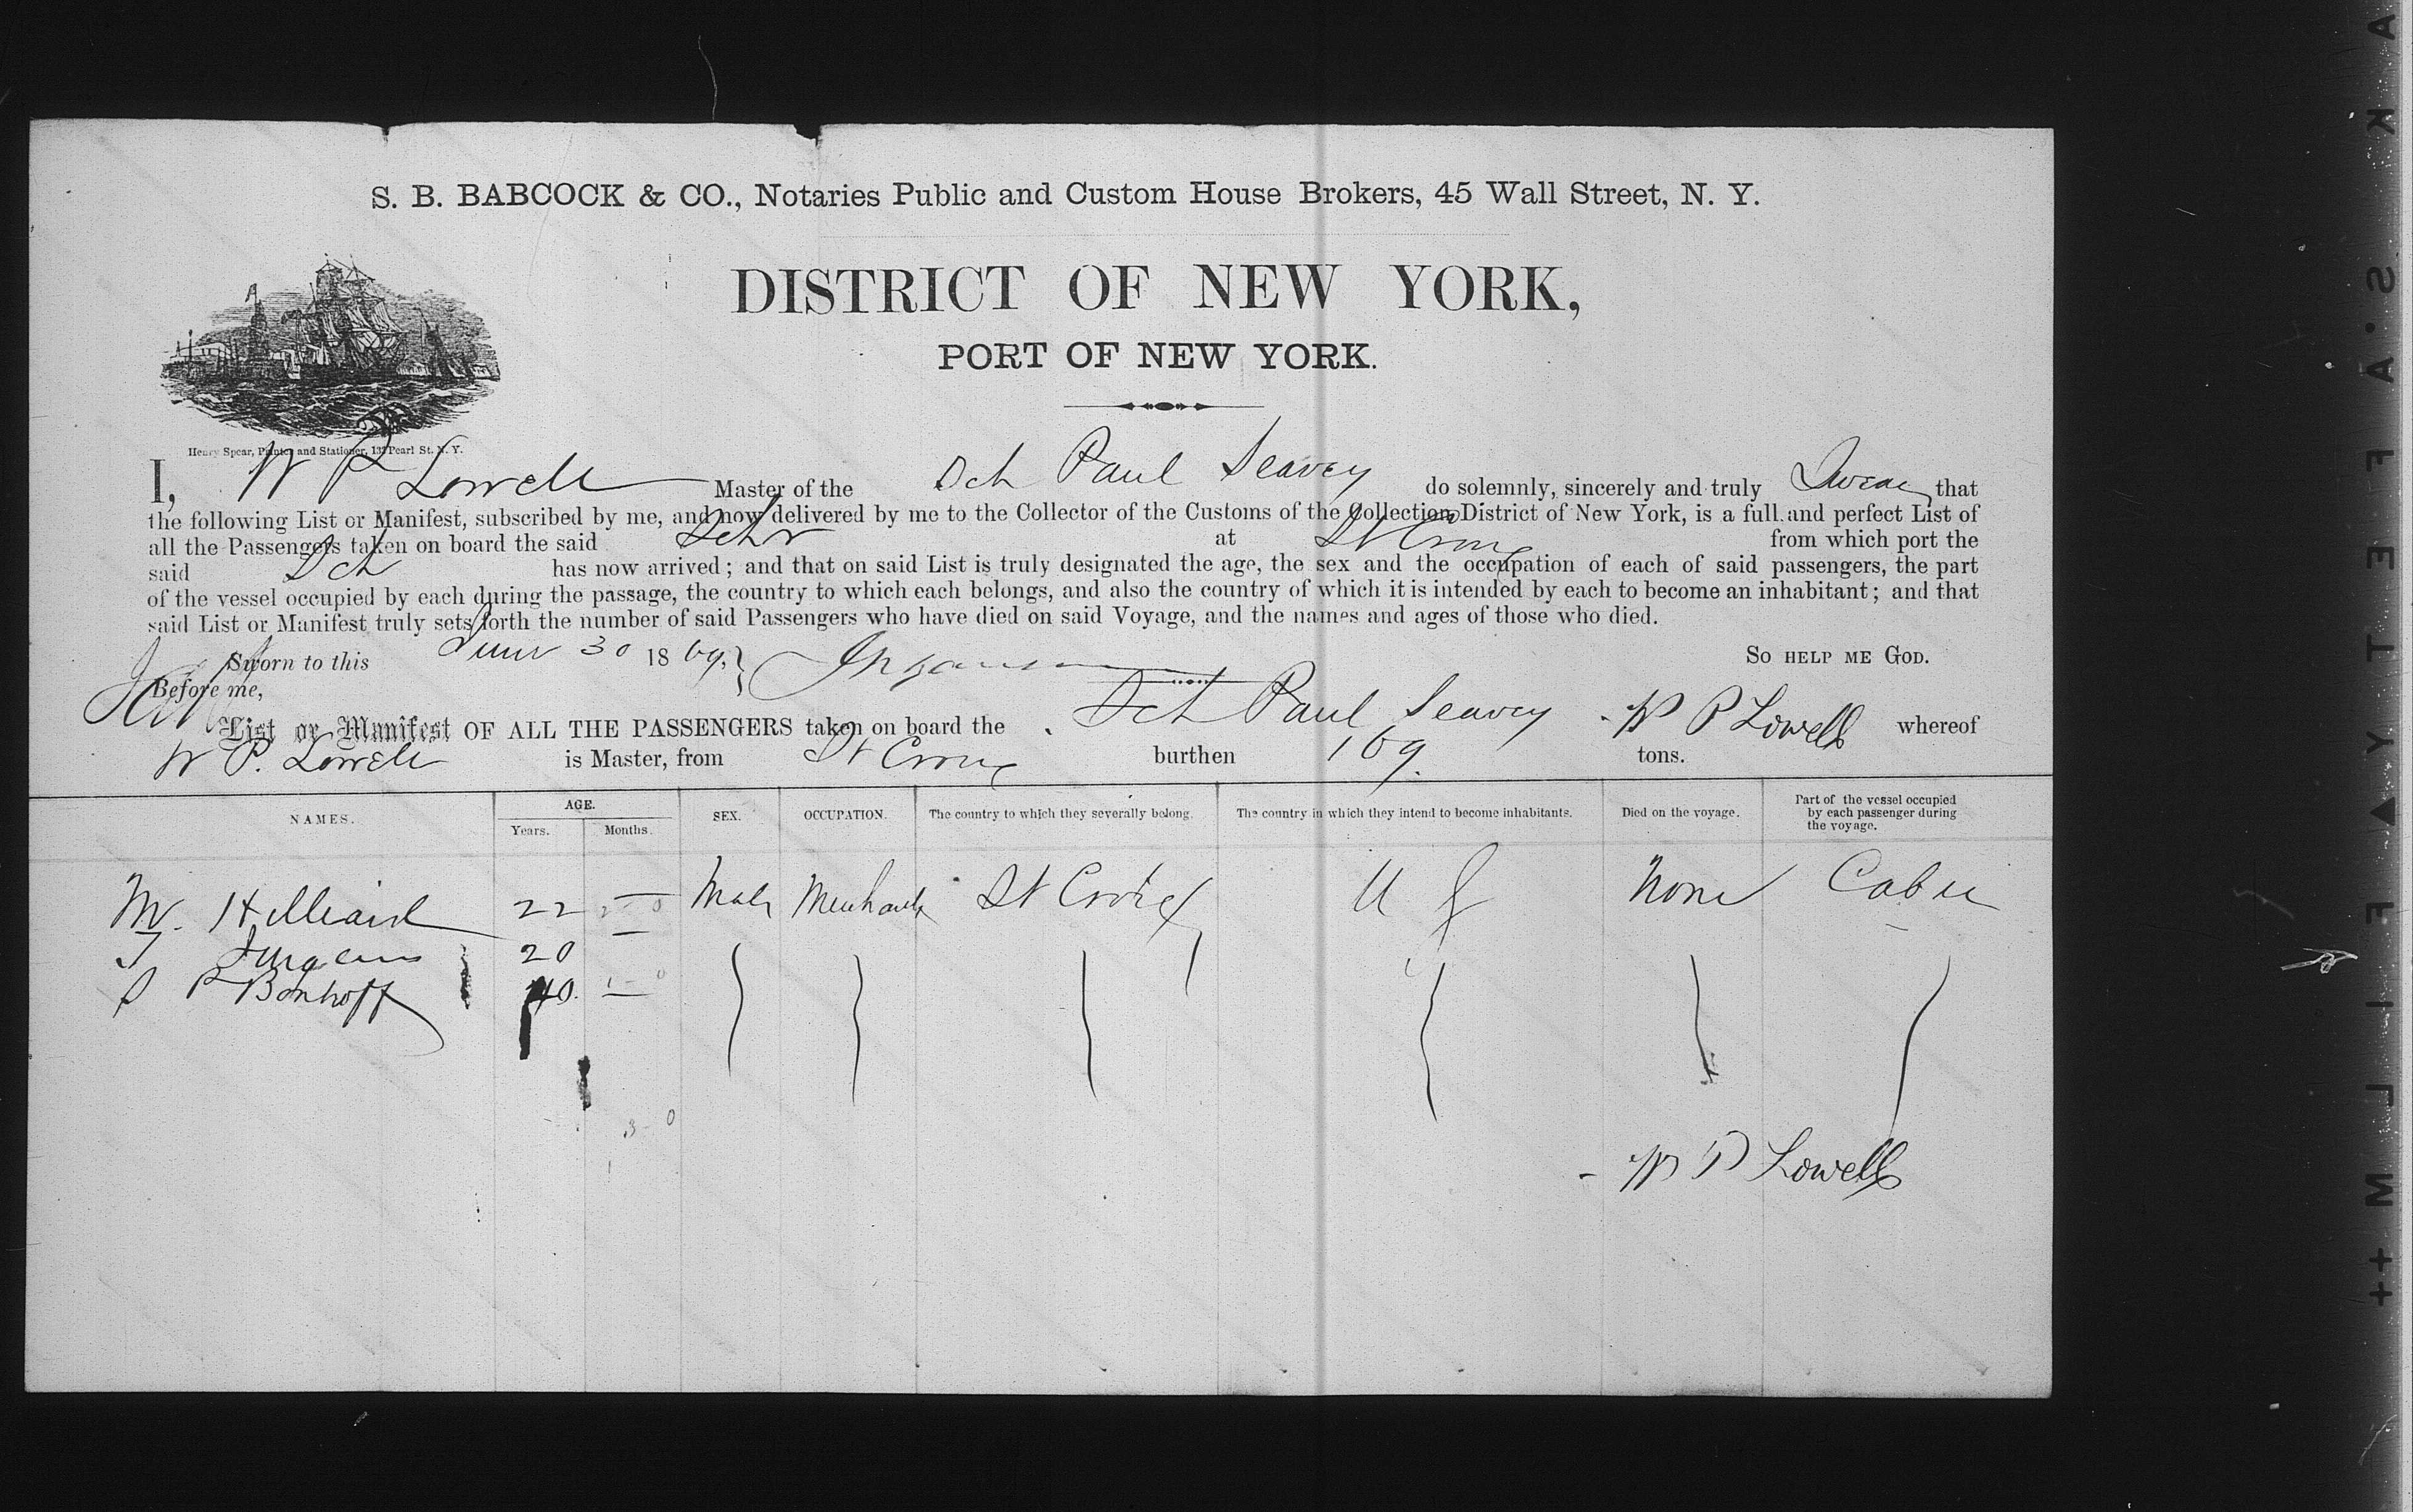 S. B. BABCOCK & CO., Notaries Public and Custom House Brokers, 45 Wall Street, N. Y.
DISTRICT OF NEW YORK,
PORT OF NEW YORK.
Henry Spear, Printer and Stationer, 133 Pearl St. N. Y.
I, W P Lowell Master of the Sch Paul Seavey do solemnly, sincerely and truly Swear that
the following List or Manifest, subscribed by me, and now delivered by me to the Collector of the Customs of the Collection District of New York, is a full and perfect List of
all the Passengers taken on board the said Schr at St Croix from which port the
said Sch has now arrived; and that on said List is truly designated the age, the sex and the occupation of each of said passengers, the part
of the vessel occupied by each during the passage, the country to which each belongs, and also the country of which it is intended by each to become an inhabitant; and that
said List or Manifest truly sets forth the number of said Passengers who have died on said Voyage, and the names and ages of those who died.
Sworn to this June 30 1869, SO HELP ME GOD.
Before me,
List or Manifest OF ALL THE PASSENGERS taken on board the Sch Paul Seavey W P Lowell whereof
W P. Lowell is Master, from St Croix burthen 169. tons.
NAMES. AGE. SEX. OCCUPATION. The country to which they severally belong. The country in which they intend to become inhabitants. Died on the voyage. Part of the vessel occupied by each passenger during the voyage.
Years. Months.
M. Hilliard 22 — Male Merchant St Croix U S None Cabin
J Jurgens 20 —
S P Bonhoff 40. —
W P Lowell